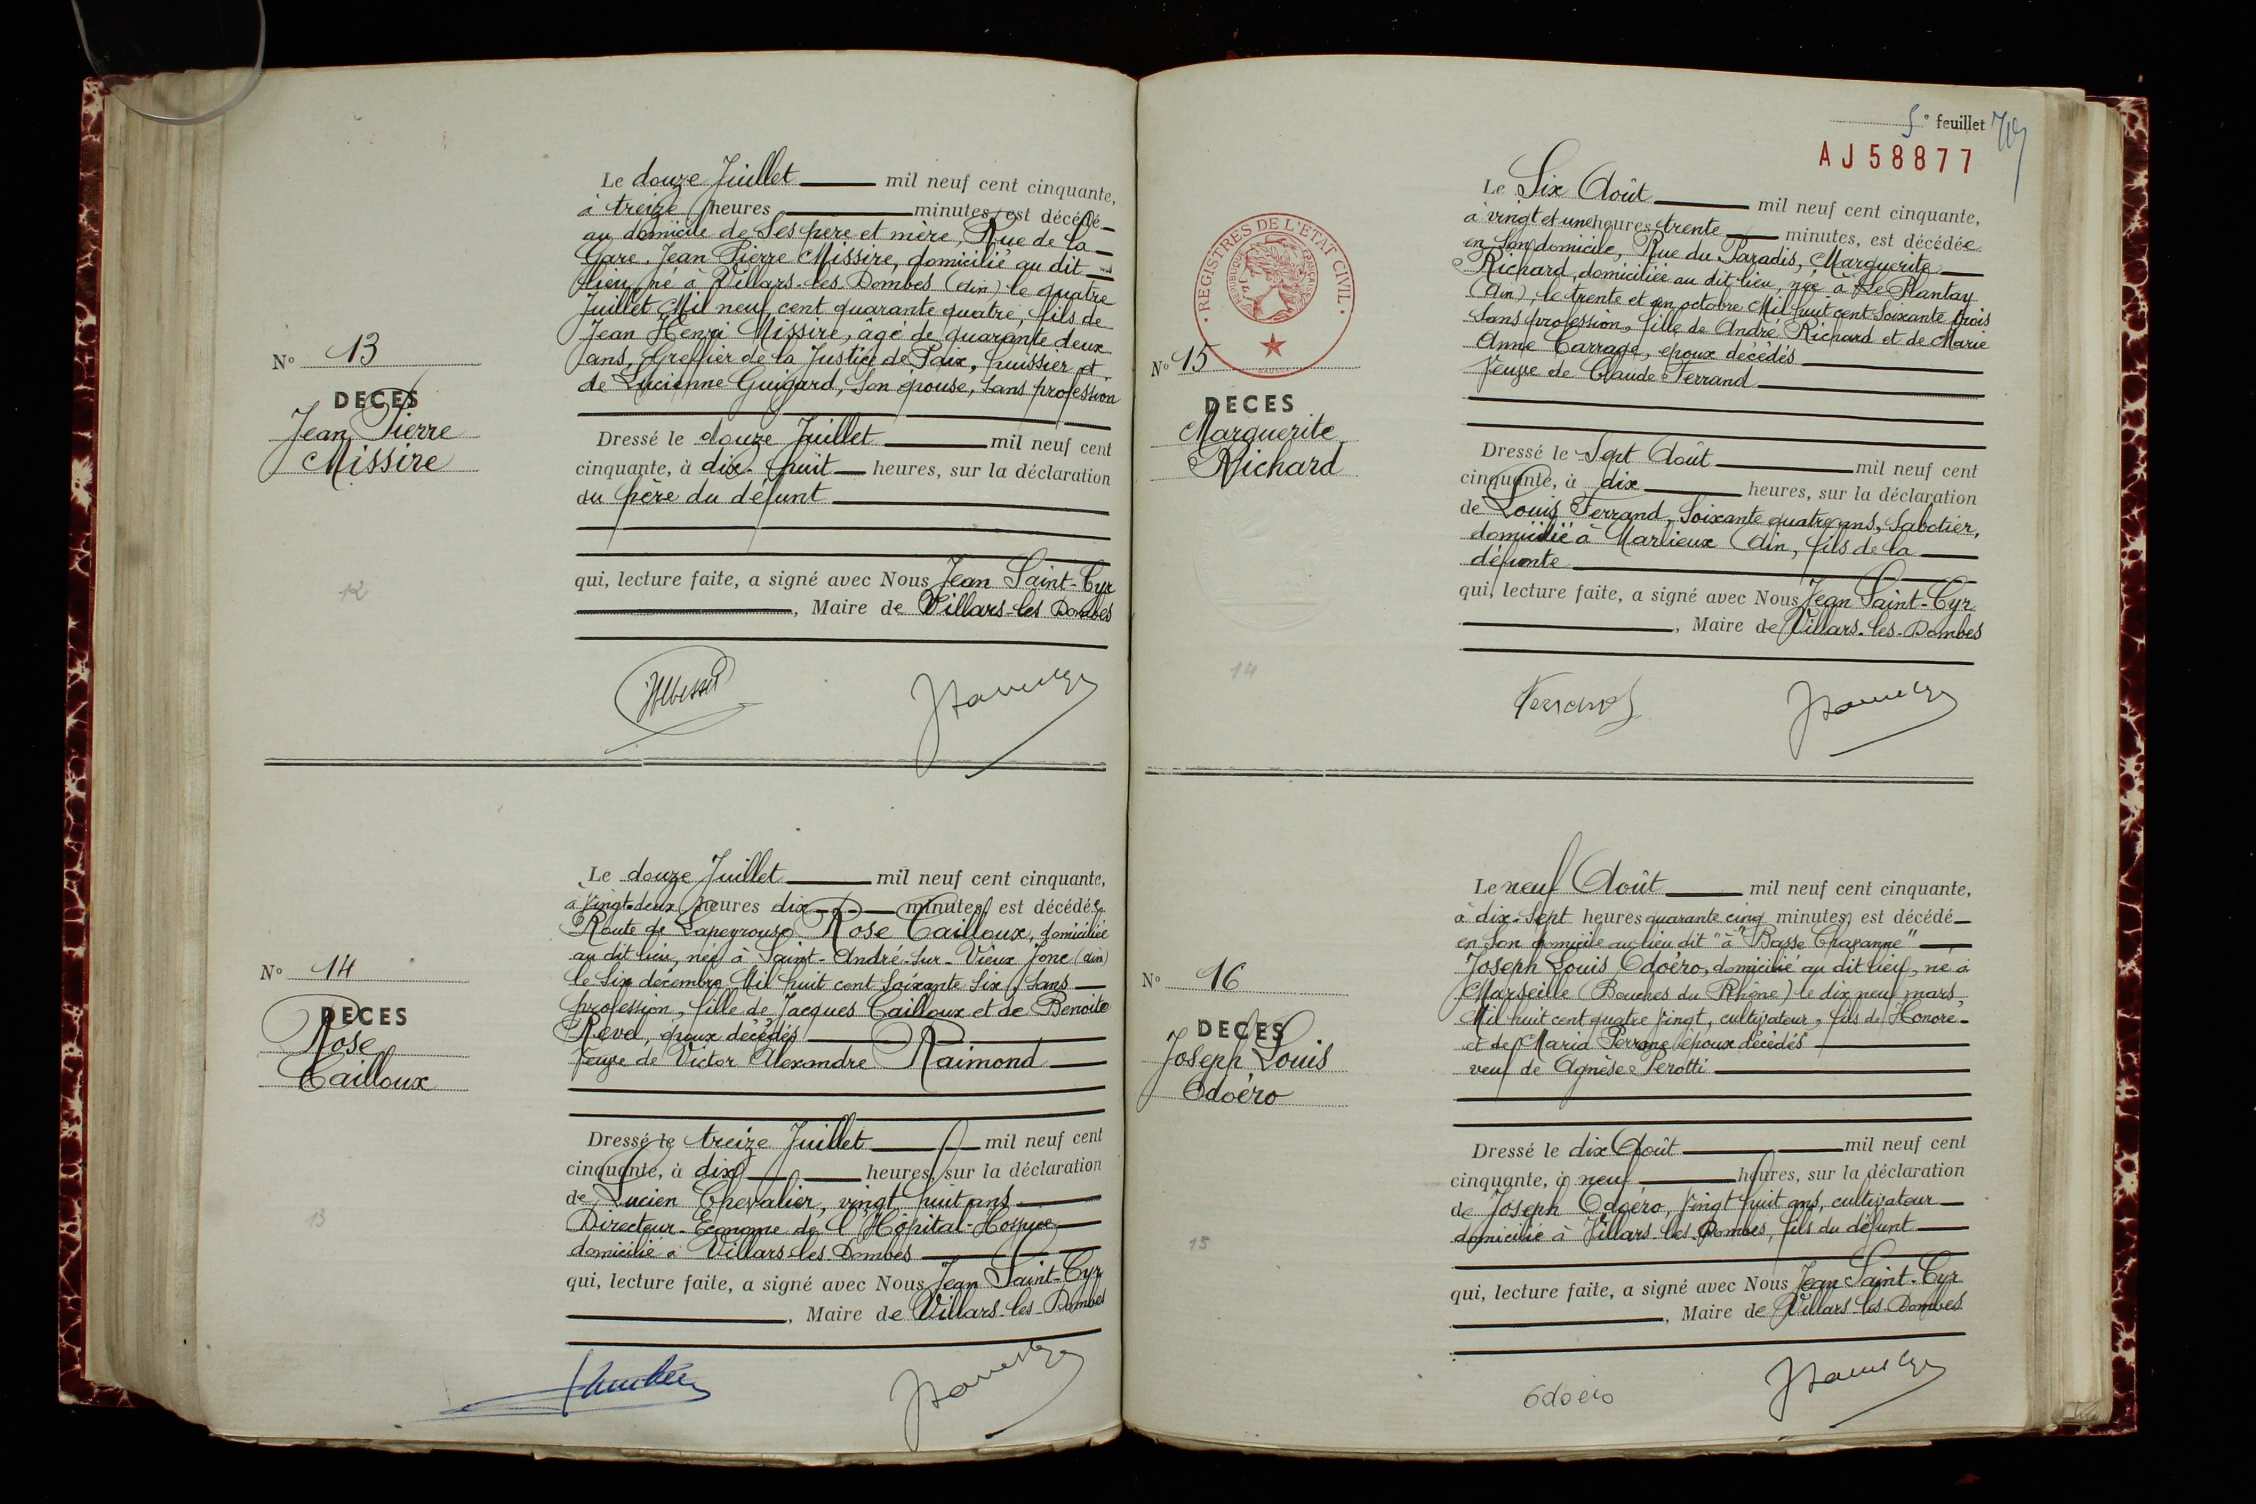 Le douze Juillet mil neuf cent cinquante,
à treize heures minutes, est décédé
au domicile de ses père et mère, Rue de la
Gare. Jean Pierre Missire, domicilié au dit
lieu, né à Villars-les-Dombes (Ain) le quatre
Juillet Mil neuf cent quarante quatre, fils de
Jean Henri Missire, âgé de quarante deux
ans, Greffier de la Justice de Paix, huissier et
de Lucienne Guigard, son épouse, sans profession
N° 13
DECES
Jean Pierre
Missire
Dressé le douze Juillet mil neuf cent
cinquante, à dix-huit heures, sur la déclaration
du père du défunt
qui, lecture faite, a signé avec Nous Jean Saint-Cyr
, Maire de Villars-les Dombes
12
Le douze Juillet mil neuf cent cinquante,
à vingt-deux heures dix minutes, est décédée
Route de Lapeyrouse Rose Cailloux, domiciliée
au dit lieu, née à Saint-André-sur-Vieux Jonc (Ain)
le six décembre Mil huit cent soixante six, sans
profession, fille de Jacques Cailloux et de Benoite
Revel, époux décédés
veuve de Victor Alexandre Raimond
N° 14
DECES
Rose
Cailloux
Dressé le treize Juillet mil neuf cent
cinquante, à dix heures, sur la déclaration
de Lucien Chevalier, vingt huit ans
Directeur-Econome de l'Hôpital-Hospice
domicilié à Villars-les-Dombes
qui, lecture faite, a signé avec Nous Jean Saint-Cyr
, Maire de Villars-les-Dombes
13
5e feuillet
AJ58877
REGISTRES DE L'ETAT CIVIL
REPUBLIQUE FRANÇAISE
Le Six Août mil neuf cent cinquante,
à vingt et une heures trente minutes, est décédée
en son domicile, Rue du Paradis, Marguerite
Richard, domiciliée au dit lieu, née à Le Plantay
(Ain), le trente et un octobre Mil huit cent soixante trois
sans profession, fille de André Richard et de Marie
Anne Carrage, époux décédés
Veuve de Claude Ferrand
N° 15
DECES
Marguerite
Richard
Dressé le Sept Août mil neuf cent
cinquante, à dix heures, sur la déclaration
de Louis Ferrand, soixante quatre ans, sabotier,
domicilié à Marlieux (Ain, fils de la
défunte
qui, lecture faite, a signé avec Nous Jean Saint-Cyr
, Maire de Villars-les-Dombes
14
Ferrand
Le neuf Août mil neuf cent cinquante,
à dix-sept heures quarante cinq minutes, est décédé
en son domicile au lieu dit "à Basse Chapanne"
Joseph Louis Odoéro, domicilié au dit lieu, né à
Marseille (Bouches du Rhône) le dix neuf mars,
Mil huit cent quatre vingt, cultivateur, fils de Honoré
et de Maria Perrone époux décédés
veuf de Agnèse Perotti
N° 16
DECES
Joseph Louis
Odoéro
Dressé le dix Août mil neuf cent
cinquante, à neuf heures, sur la déclaration
de Joseph Odoéro, vingt huit ans, cultivateur
domicilié à Villars-les-Dombes, fils du défunt
qui, lecture faite, a signé avec Nous Jean Saint-Cyr
, Maire de Villars-les-Dombes
15
Odoéro